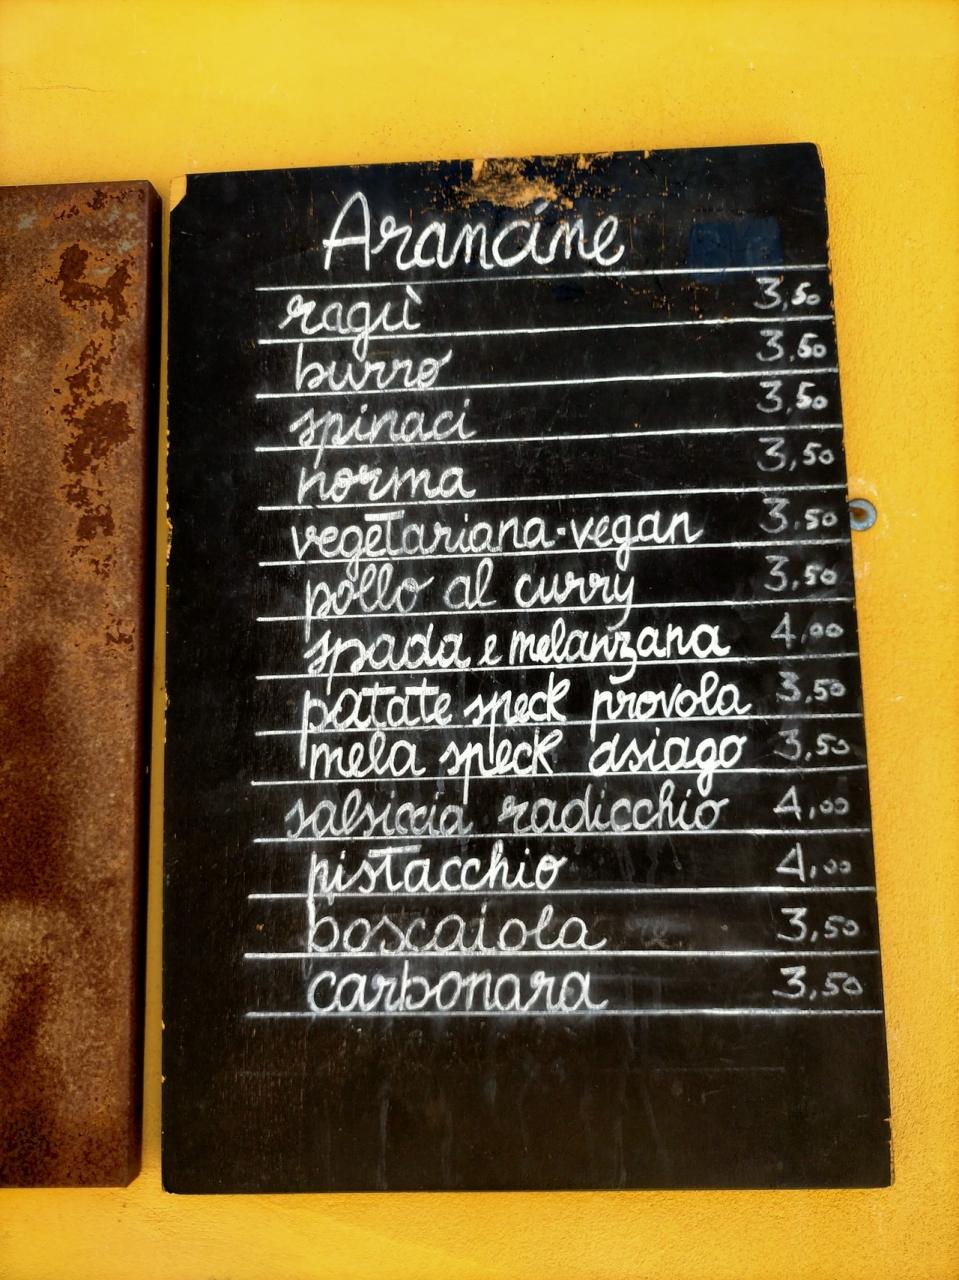 Arancine
ragù 3,50
burro 3,50
spinaci 3,50
norma 3,50
vegetariana-vegan 3,50
pollo al curry 3,50
spada e melanzana 4,00
patate speck provola 3,50
mela speck asiago 3,50
salsiccia radicchio 4,00
pistacchio 4,00
boscaiola 3,50
carbonara 3,50